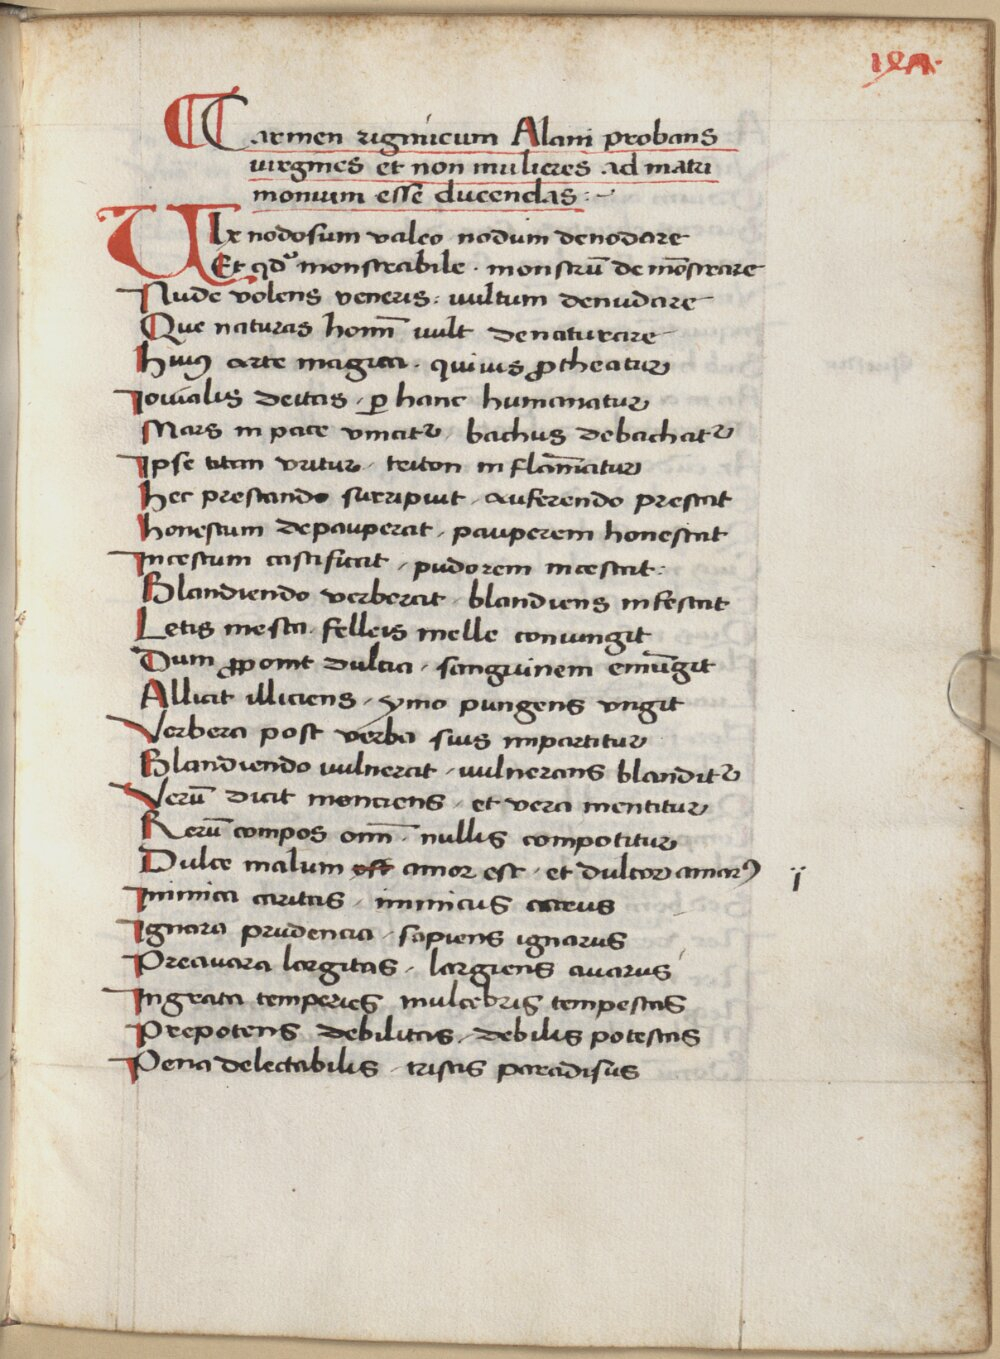 Carmen rigmicum Alani probans
virgines et non mulieres ad matri
monium esse ducendas :~
Vix nodosum valeo nodum denodare
Et qdͥ monstrabile · monstrū demōstrare
Nude volens veneris : vultum denudare
Que naturas homī vult denaturare
Huiꝰ arte magica · quiuis ꝓtheatur
Iouialis deitas · ꝑ hanc humanatur
Mars in pace vincitᷣ · bachus debachatᷣ
Ipse titan vritur · triton inflam̄atur
Hec prestando surripiuit · auferendo prestat
Honestum depauperat · pauperem honestat
Incestum castificat · pudorem incestat :
Blandiendo verberat · blandiens infestat
Letis mesta · felleis melle coniungit
Dum ꝓponit dulcia · sanguinem emūgit
Allicit illiciens · ymo pungens vngit
Verbera post verba suis impartitur
Blandiendo vulnerat · vulnerans blanditᷣ
Verū dicit menciens · et vera mentitur
Rerū compos omī · nullis compotitur
Dulce malum est amor est · et dulcor amarꝰ ï
Inimica caritas · inimicus carus
Ignara prudencia · sapiens ignarus
Preauara largitas · largiens auarus
Ingrata temperies mulcebris tempestas
Prepotens debilitas · debilis potestas
Pena delectabilis · tristis paradisus